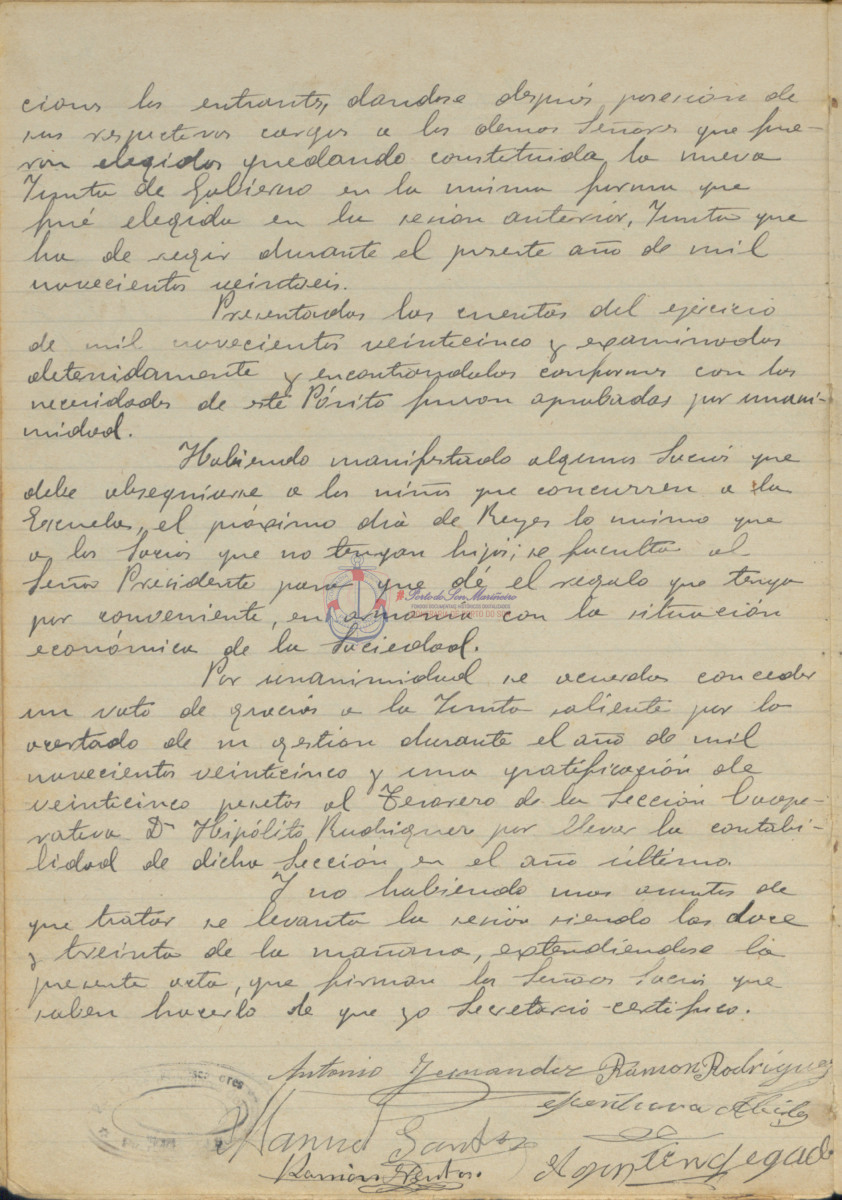 ciones los entrantes, dandose después posesión de
sus respectivos cargos a los demas Señores que fue-
ron elegidos quedando constituida la nueva
Junta de Gobierno en la misma forma que
fué elegida en la sesión anterior, Junta que
ha de regir durante el presente año de mil
novecientos veintiseis.
Presentadas las cuentas del ejercicio
de mil novecientos veinticinco y examinadas
detenidamente y encontrandolas conformes con las
necesidades de este Pósito fueron aprobadas por unani-
midad.
Habiendo manifestado algunos Socios que
debe obsequiarse a los niños que concurren a la
Escuela, el próximo dia de Reyes lo mismo que
a los Socios que no tengan hijos; se faculta al
Señor Presidente para que dé el regalo que tenga
por conveniente, en armonia con la situación
económica de la Sociedad.
#PortodeSonMariñeiro
Por unanimidad se acuerda conceder
un voto de gracias a la Junta saliente por lo
acertado de su gestión durante el año de mil
novecientos veinticinco y una gratificación de
veinticinco pesetas al Tesorero de la Sección Coope-
rativa Dn Hipólito Rodriguez por llevar la contabi-
lidad de dicha Sección en el año último.
Y no habiendo mas asuntos de
que tratar se levanta la sesión siendo las doce
y treinta de la mañana, extendiéndose la
presente acta, que firman los Señores Socios que
saben hacerlo de que yo Secretario certifico.
Antonio Fernandez Ramon Rodriguez
Manuel Santos
Ramón Ventoso.